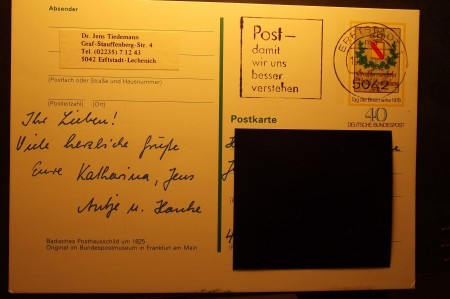 Absender
Dr. Jens Tiedemann
Graf-Stauffenberg-Str. 4
Tel. (02235) 7 12 43
5042 Erftstadt-Lechenich
(Postfach oder Straße und Hausnummer)
(Postleitzahl) (Ort)
Ihr Lieben!
Viele herzliche Grüße
Eure Katharina, Jens
Antje u. Hauke
Badisches Posthausschild um 1825
Original im Bundespostmuseum in Frankfurt am Main
Post–
damit
wir uns
besser
verstehen
ERFTSTADT
5042
Tag der Briefmarke 1978
40
DEUTSCHE BUNDESPOST
Postkarte